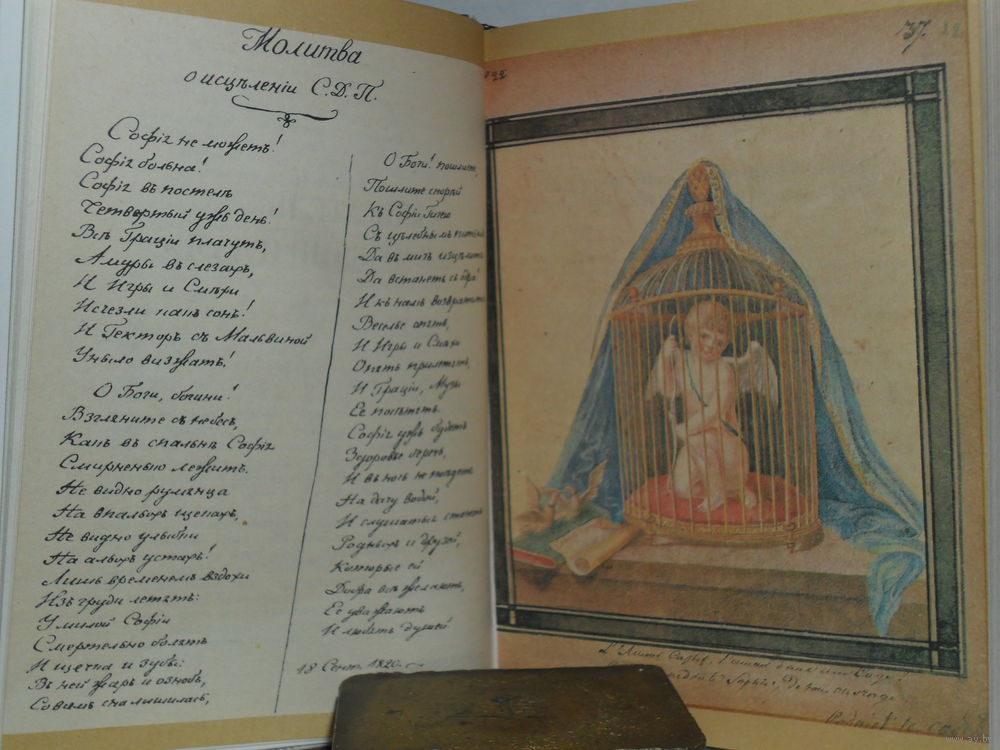 Молитва
о исцѣленіи С.Д.П.
Софія не можетъ!
Софія больна!
Софія въ постелѣ
Четвертый ужъ день!
Всѣ Граціи плачутъ,
Амуры въ слезахъ,
И Игры и Смѣхи
Исчезли какъ сонъ!
И Гекторъ съ Мальвиной
Уныло визжатъ!
О Боги, богини!
Взгляните съ небесъ,
Какъ въ спальнѣ Софія
Смирненько лежитъ.
Не видно румянца
На впалыхъ щекахъ,
Не видно улыбки
На алыхъ устахъ!
Лишь временемъ вздохи
Изъ груди летятъ:
У милой Софіи
Смертельно болятъ
И щечка и зубы:
Въ ней жаръ и ознобъ,
Совсѣмъ
О Боги! пошлите,
Пошлите скорѣй
Къ Софіи Гигею
Съ цѣлебнымъ
Да въ мигъ
Да встанетъ съ одра!
И къ намъ
Веселье опять,
И Игры и Смѣхи
Опять прилетятъ,
И Граціи, Музы
Ее
Софія ужъ будетъ
Здоровье беречь,
И въ ночь не поѣдетъ
На дачу водой,
И слушаться станетъ
Родныхъ и друзей,
Которые ей
Добра всѣ желаютъ,
Ее уважаютъ
И любятъ душой
18 Сент. 1820.
37.
L'Amour dans une Cage!
Sophie,